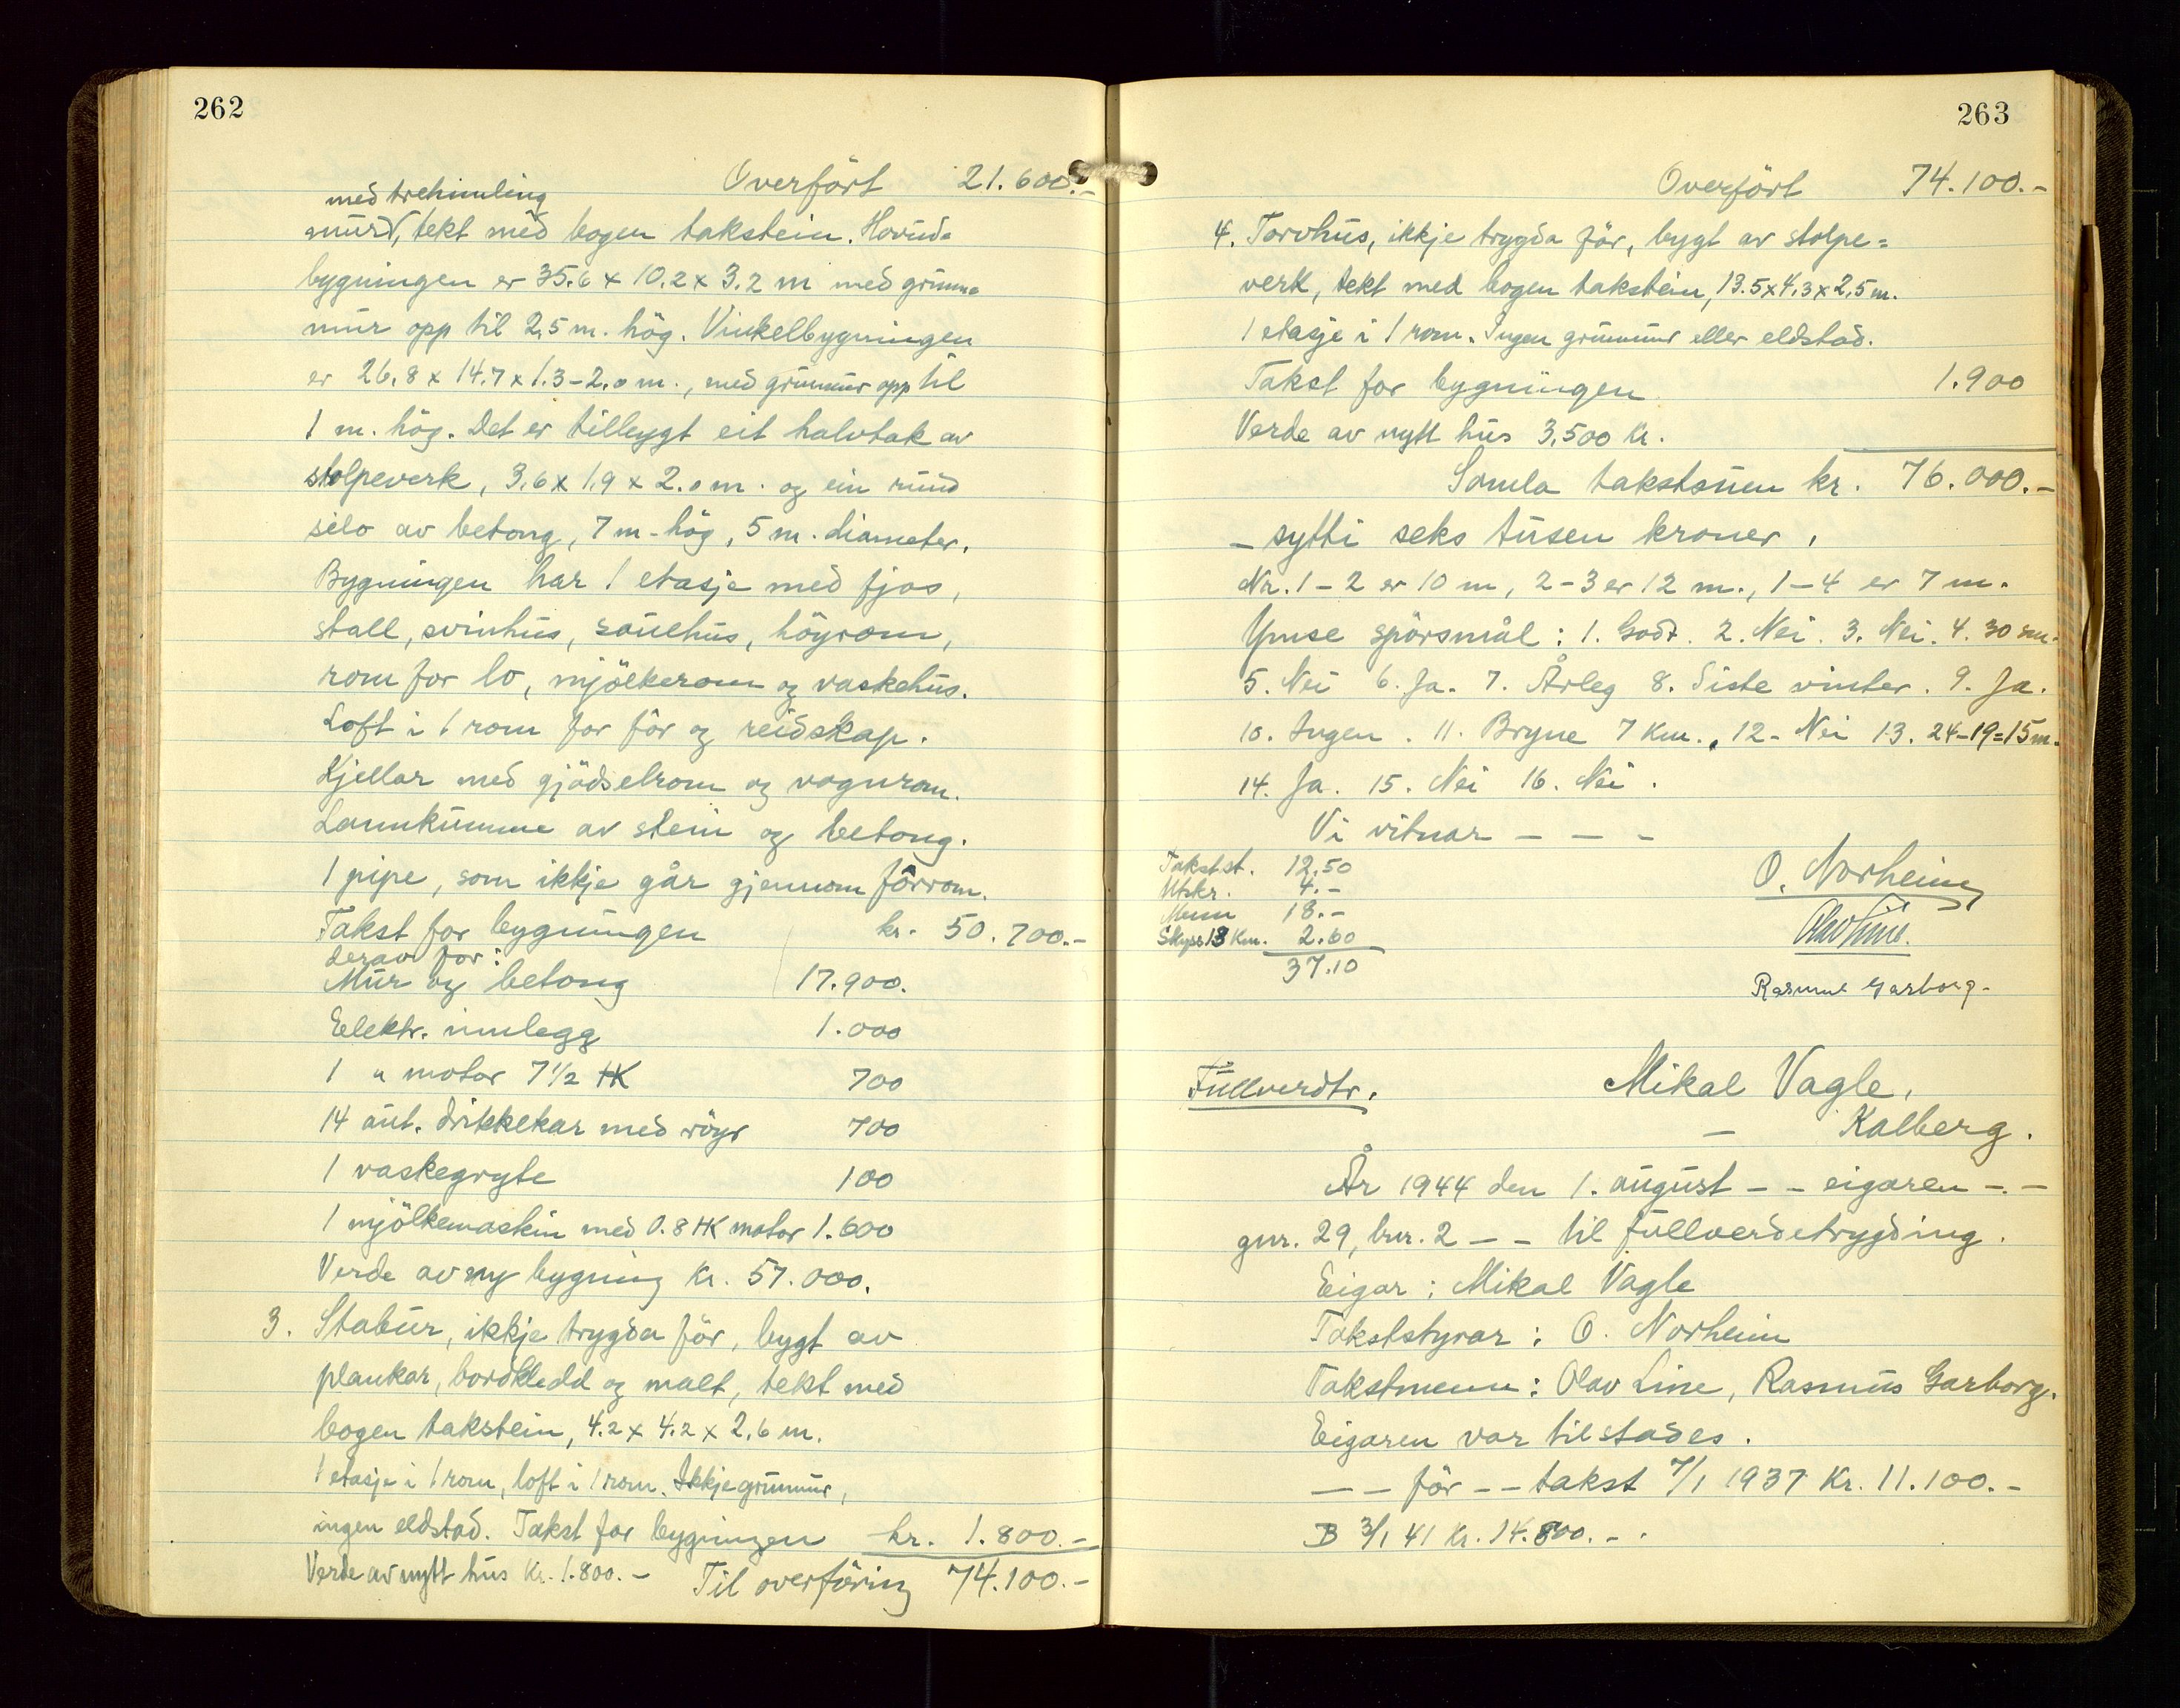 262
Overført 21.600.-
med trehimling
mur, tekt med bogen takstein. Hovud=
bygningen er 35.6 x 10.2 x 3.2 m med grunn=
mur opp til 2,5 m. hög. Vinkelbygningen
er 26,8 x 14.7 x 1.3-2.0 m., med grunnmur opp til
1 m. hög. Det er tilbygt eit halvtak av
stolpeverk, 3,6 x 1,9 x 2.0 m. og ein rund
silo av betong, 7 m. hög, 5 m. diameter.
Bygningen har 1 etasje med fjos,
stall, svinhus, sauehus, höyrom,
rom for lo, mjölkerom og vaskehus.
Loft i 1 rom for fôr og reidskap.
Kjellar med gjödselrom og vognrom.
Lannkumme av stein og betong.
1 pipe, som ikkje går gjennom fôrrom.
Takst for bygningen kr. 50.700.-
derav for:
Mur og betong 17.900.
Elektr. innlegg 1.000
1 " motor 7 1/2 HK 700
14 aut. drikkekar med röyr 700
1 vaskegryte 100
1 mjölkemaskin med 0.8 HK motor 1.600
Verde av ny bygning kr. 57.000.
3. Stabur, ikkje trygda för, bygt av
plankar, bordkledd og malt, tekt med
bogen takstein, 4.2 x 4.2 x 2.6 m.
1 etasje i 1 rom, loft i 1 rom. Ikkje grunnmur,
ingen eldstad. Takst for bygningen kr. 1.800.-
Verde av nytt hus Kr. 1.800.- Til overföring 74.100.-
263
Overfört 74.100.-
4. Torvhus, ikkje trygda för, bygt av stolpe=
verk, tekt med bogen takstein, 13.5 x 4,3 x 2,5 m.
1 etasje i 1 rom. Ingen grunnmur eller eldstad.
Takst for bygningen 1.900
Verde av nytt hus 3,500 kr.
Samla takstsum kr. 76.000.-
- sytti seks tusen kroner.
Nr. 1-2 er 10 m, 2-3 er 12 m., 1-4 er 7 m.
Ymse spörsmål: 1. Godt. 2. Nei. 3. Nei. 4. 30 sm.
5. Nei 6. Ja. 7. Årleg 8. Siste vinter. 9. Ja.
10. Ingen. 11. Bryne 7 Km. 12- Nei 13. 24-19=15 m.
14. Ja. 15. Nei 16. Nei.
Vi vitnar - - -
Takstst. 12.50
Utskr. 4.-
Menn 18.-
Skyss 13 Km. 2.60
37.10
O. Norheim
Olav Line.
Rasmus Garborg.
Fullverdtr. Mikal Vagle,
- Kalberg.
År 1944 den 1. august - - eigaren - -
gnr. 29, bnr. 2 - - til fullverdetrygding.
Eigar: Mikal Vagle
Takststyrar: O. Norheim
Takstmenn: Olav Line, Rasmus Garborg.
Eigaren var tilstades.
- - för - - takst 7/1 1937 Kr. 11.100.-
B 3/1 41 Kr. 14.800.-.